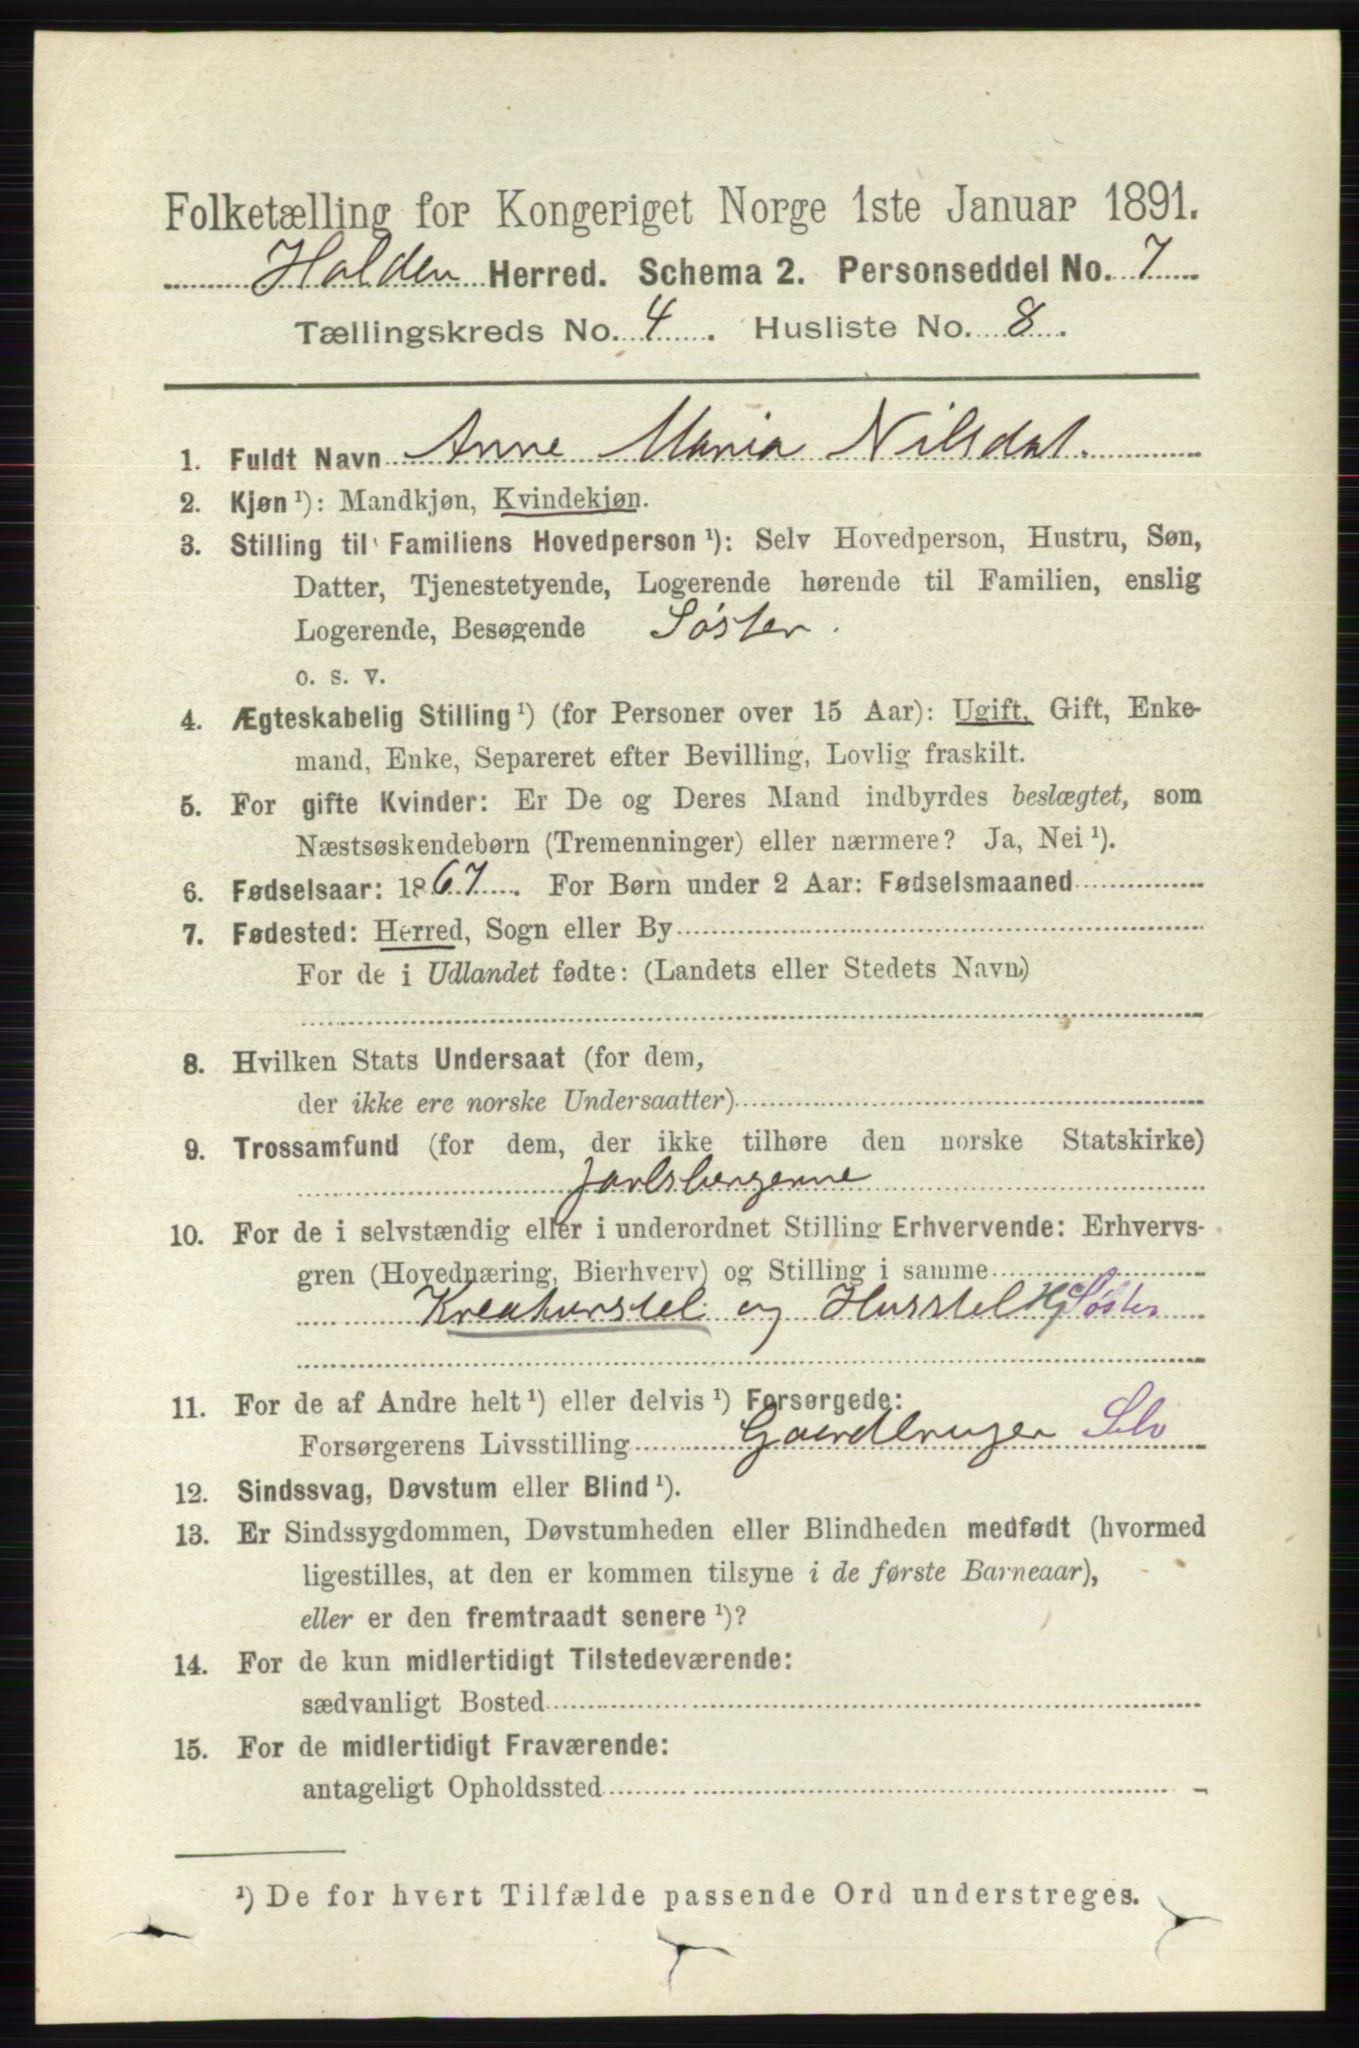 Folketælling for Kongeriget Norge 1ste Januar 1891.
Holden Herred. Schema 2. Personseddel No. 7
Tællingskreds No. 4. Husliste No. 8.
1. Fuldt Navn Anne Maria Nilsdat.
2. Kjøn ¹): Mandkjøn, Kvindekjøn.
3. Stilling til Familiens Hovedperson ¹): Selv Hovedperson, Hustru, Søn,
Datter, Tjenestetyende, Logerende hørende til Familien, enslig
Logerende, Besøgende Søster.
o. s. v.
4. Ægteskabelig Stilling ¹) (for Personer over 15 Aar): Ugift, Gift, Enke-
mand, Enke, Separeret efter Bevilling, Lovlig fraskilt.
5. For gifte Kvinder: Er De og Deres Mand indbyrdes beslægtet, som
Næstsøskendebørn (Tremenninger) eller nærmere? Ja, Nei ¹).
6. Fødselsaar: 1867. For Børn under 2 Aar: Fødselsmaaned
7. Fødested: Herred, Sogn eller By
For de i Udlandet fødte: (Landets eller Stedets Navn)
8. Hvilken Stats Undersaat (for dem,
der ikke ere norske Undersaatter)
9. Trossamfund (for dem, der ikke tilhøre den norske Statskirke)
Jarlsbergerne
10. For de i selvstændig eller i underordnet Stilling Erhvervende: Erhvervs-
gren (Hovednæring, Bierhverv) og Stilling i samme
Kreaturstel og Husstel Søster
11. For de af Andre helt ¹) eller delvis ¹) Forsørgede:
Forsørgerens Livsstilling Gaardbruger Selv
12. Sindssvag, Døvstum eller Blind ¹).
13. Er Sindssygdommen, Døvstumheden eller Blindheden medfødt (hvormed
ligestilles, at den er kommen tilsyne i de første Barneaar),
eller er den fremtraadt senere ¹)?
14. For de kun midlertidigt Tilstedeværende:
sædvanligt Bosted
15. For de midlertidigt Fraværende:
antageligt Opholdssted
¹) De for hvert Tilfælde passende Ord understreges.